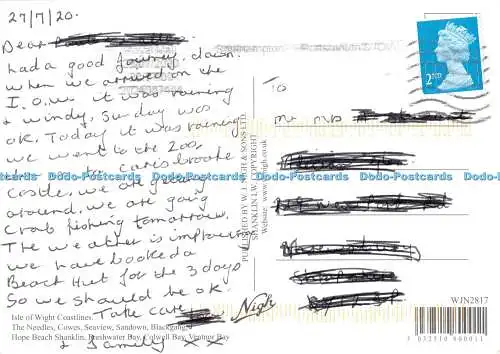 27/7/20.
Dear
had a good journey down.
when we arrived on the
I.O.W. it was raining
& windy, Sunday was
ok. Today it was raining
we went to the zoo,
Carisbrooke
Castle. we are getting
around, we are going
Crab fishing tomorrow.
The weather is improving
we have booked a
Beach Hut for the 3 days
So we should be ok.
Take care
& family XX
Isle of Wight Coastlines.
The Needles, Cowes, Seaview, Sandown, Blackgang,
Hope Beach Shanklin, Freshwater Bay, Colwell Bay, Ventnor Bay
Nigh
PUBLISHED BY W. J. NIGH & SONS LTD.
SHANKLIN I.W. COPYRIGHT
Website: www.wjnigh.co.uk
TO
Mr Mrs
2ND
WJN2817
Dodo-Postcards Dodo-Postcards Dodo-Postcards Dodo-Postcards Dodo-Postcards